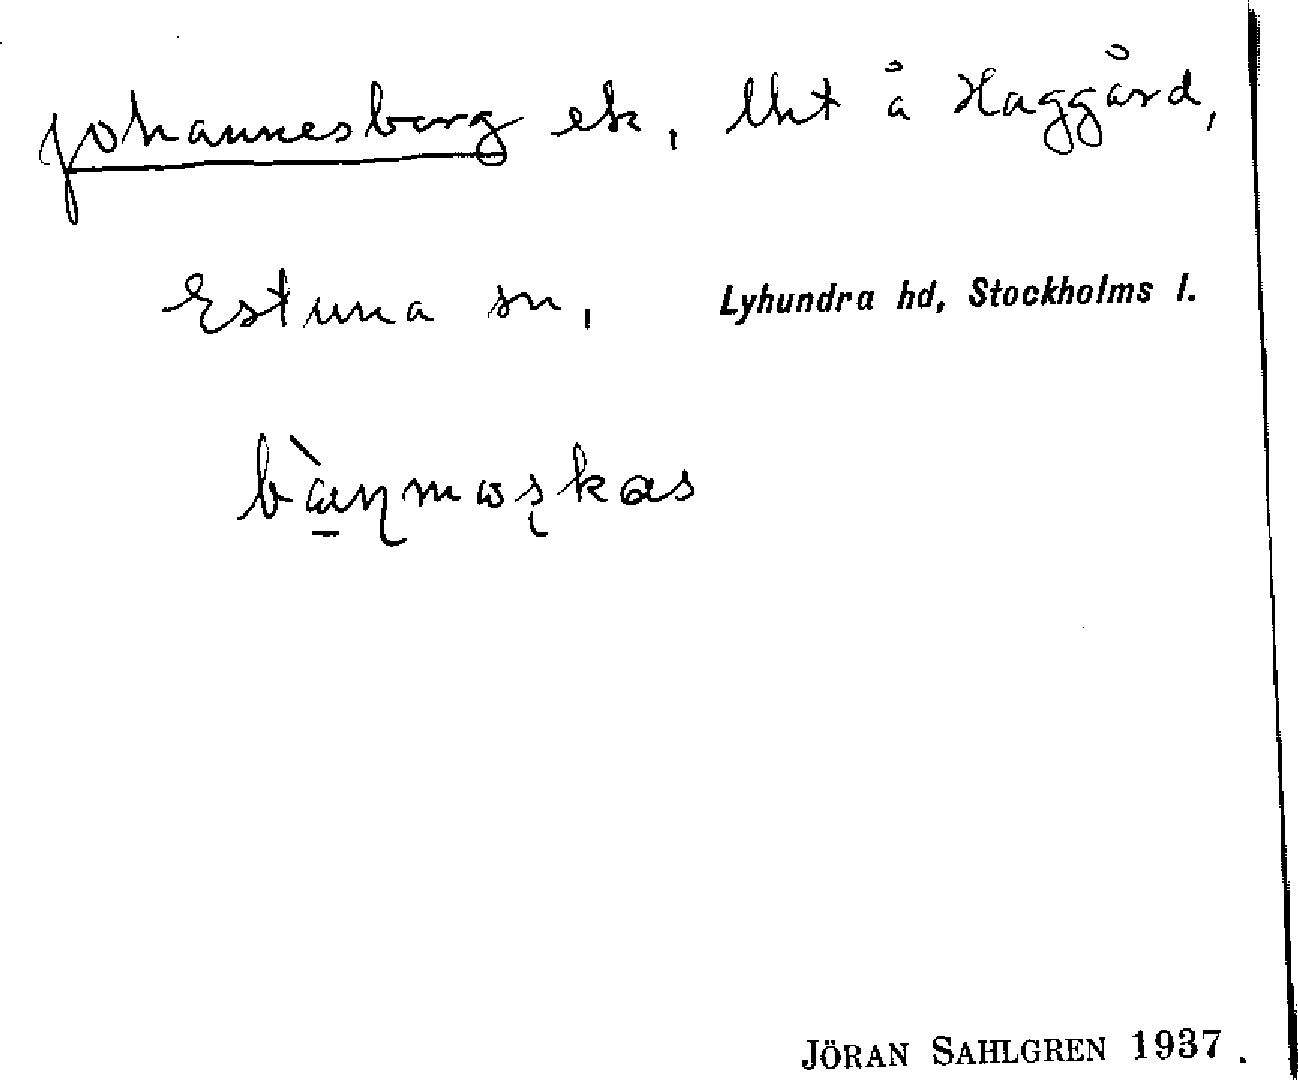 Johannesberg ek, lht å Haggård,
Estuna sn, Lyhundra hd, Stockholms l.
JÖRAN SAHLGREN 1937.